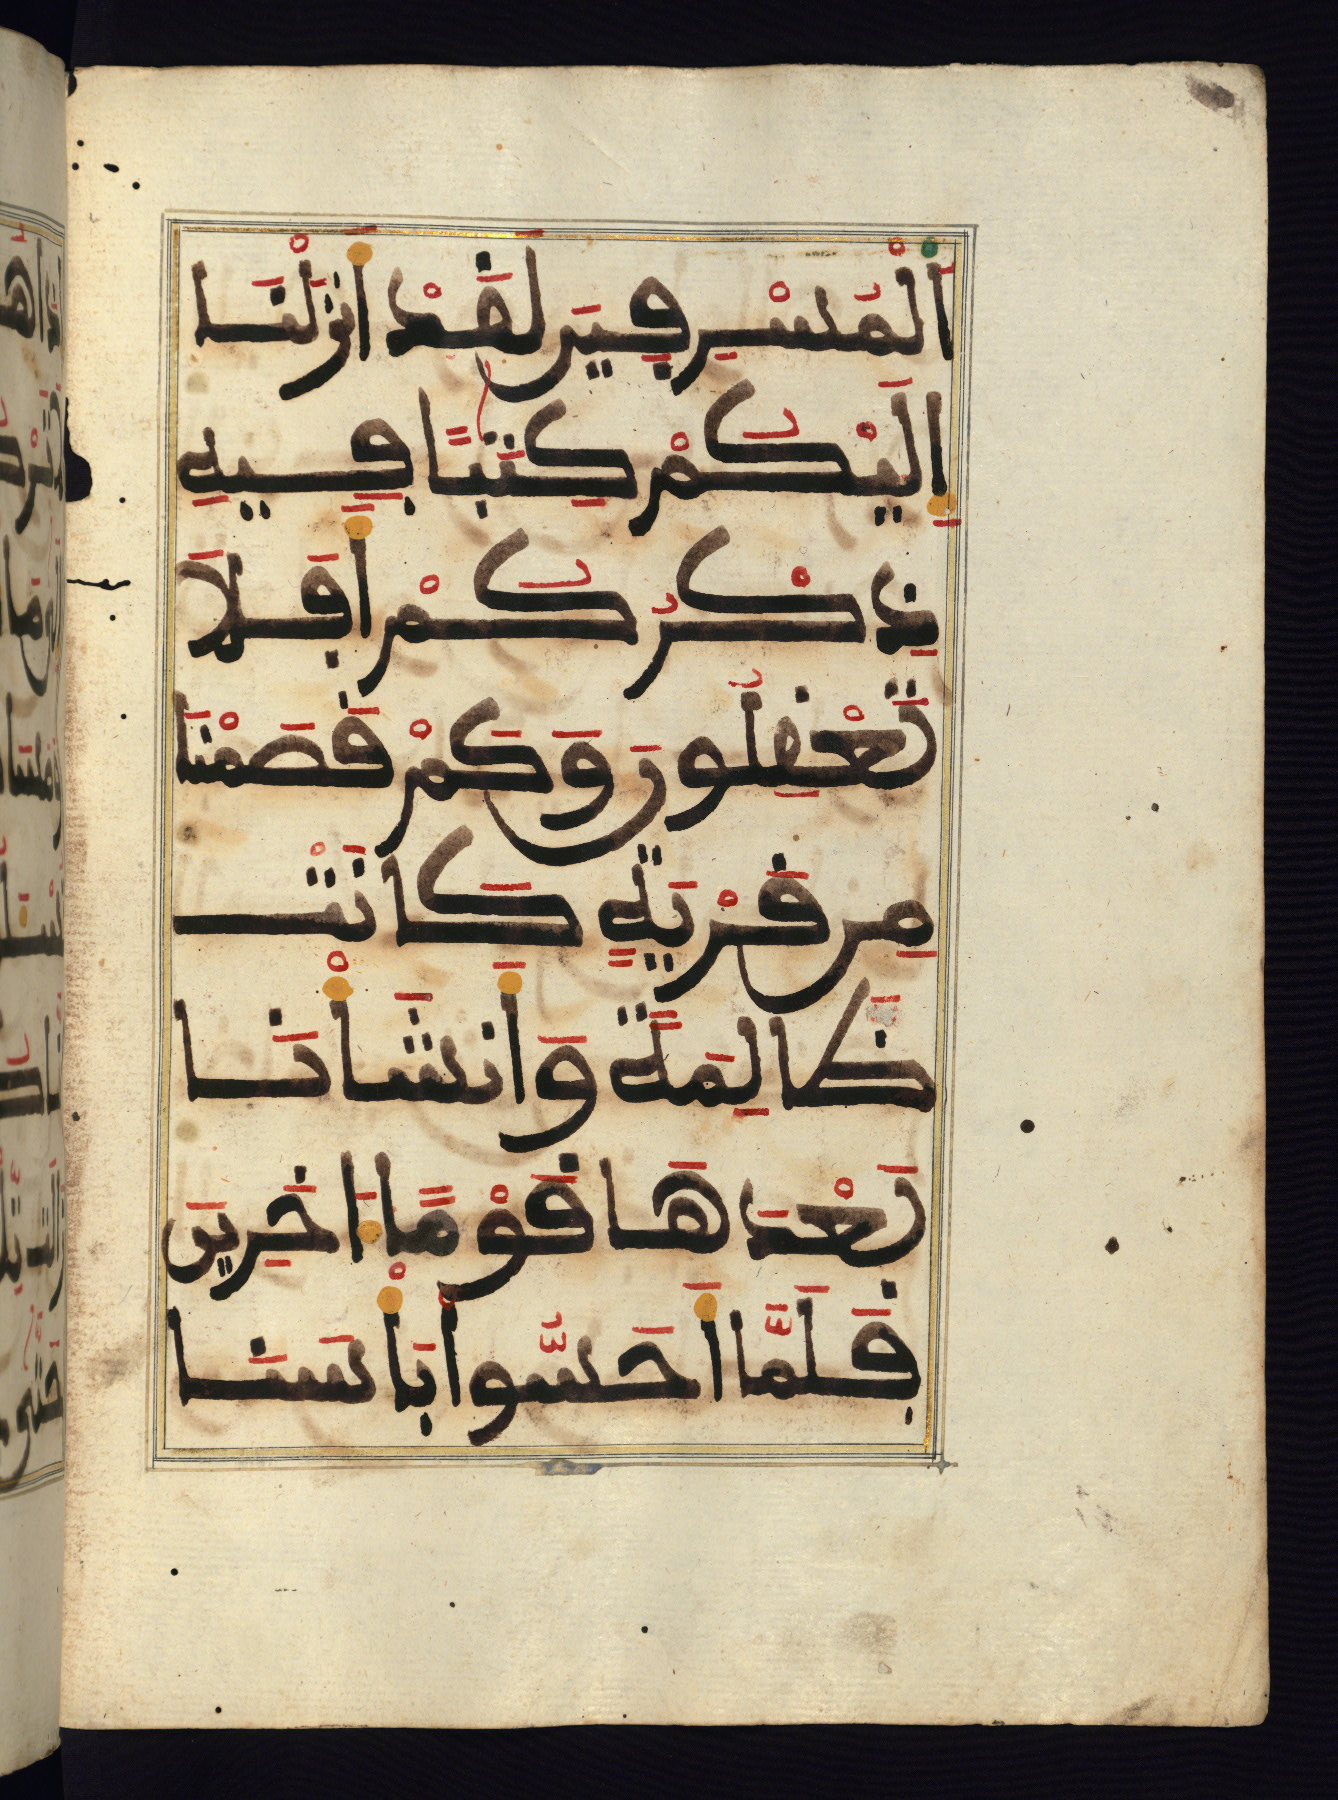 اَلْمُسْرِفِينَ لَقَدْ أَنزَلْنَا
إِلَيْكُمْ كِتَٰبًا فِيهِ
ذِكْرُكُمْ أَفَلَا
تَعْقِلُونَ وَكَمْ قَصَمْنَا
مِن قَرْيَةٍ كَانَتْ
ظَالِمَةً وَأَنشَأْنَا
بَعْدَهَا قَوْمًا ءَاخَرِينَ
فَلَمَّا أَحَسُّواْ بَأْسَنَا